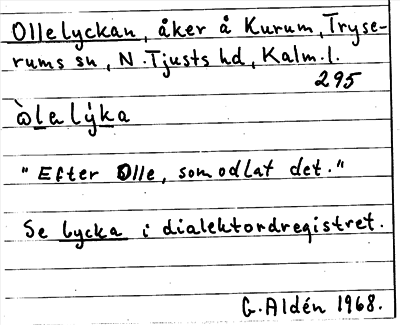 Ollelyckan, åker å Kurum, Tryse-
rums sn, N. Tjusts hd, Kalm. l.
295
òlelýka
"Efter Olle, som odlat det."
Se lycka i dialektordregistret.
G. Aldén 1968.